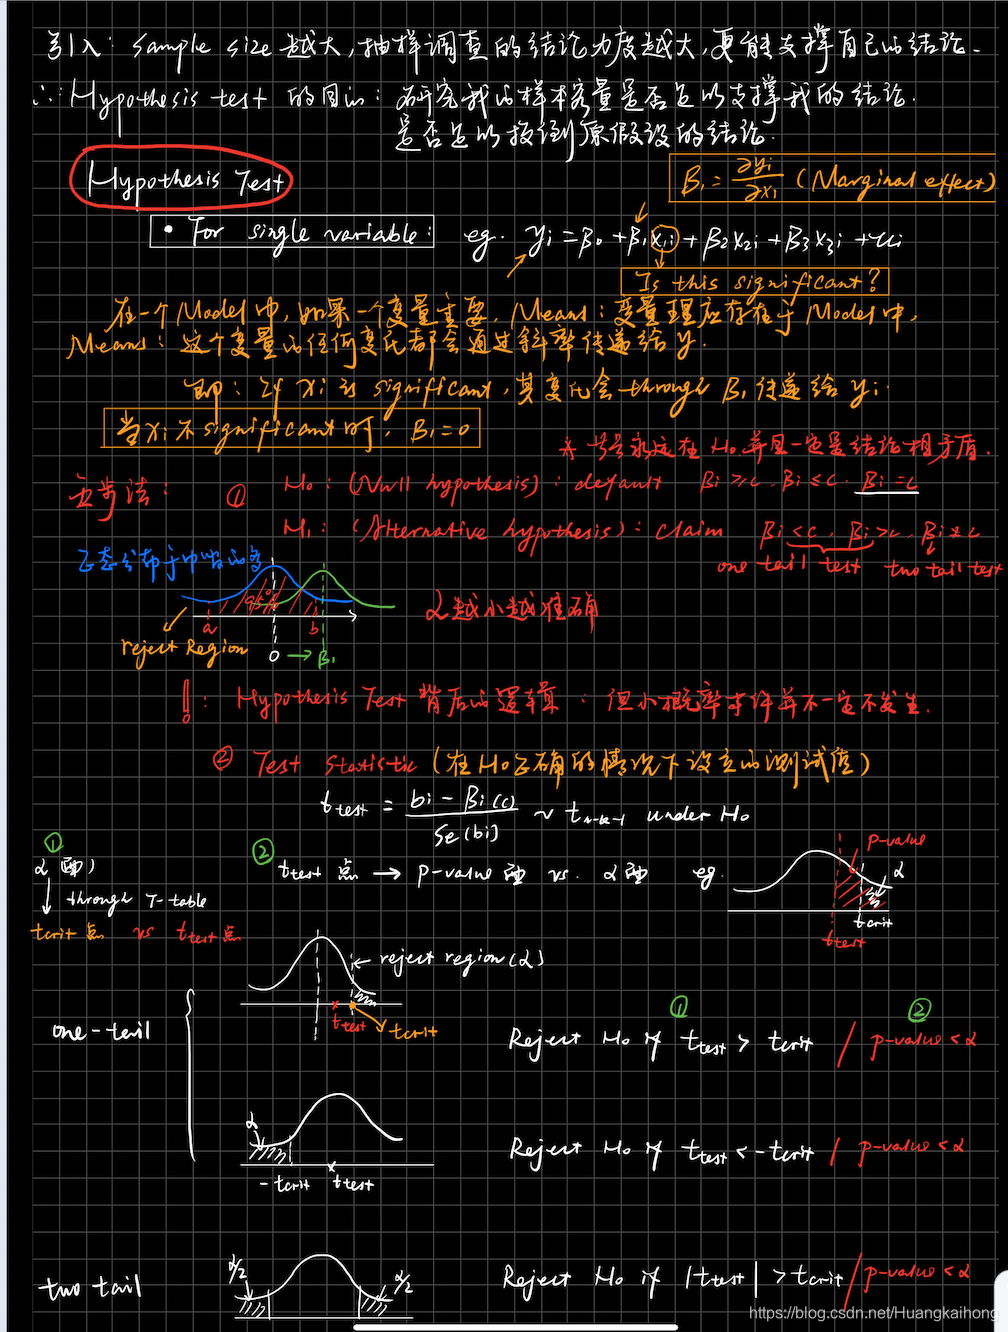 引入: Sample size 越大, 抽样调查的结论力度越大, 更能支撑自己的结论.
∴ Hypothesis test 的目的: 研究我的样本容量是否足以支撑我的结论.
是否足以推倒原假设的结论.
Hypothesis Test
β₁ = ∂yi/∂x₁ (Marginal effect)
• For single variable: eg. yi = β₀ + β₁x₁i + β₂x₂i + β₃x₃i + ui
Is this significant?
在一个 Model 中, 如果一个变量重要, Means: 变量理应存在于 Model 中,
Means: 这个变量的任何变化都会通过斜率传递给 y.
即: If xi is significant, 其变化会 through β₁ 传递给 yi.
当 xi 不 significant 时, β₁ = 0
* 等号永远在 H₀ 并且一定是结论相矛盾.
五步法: ① H₀: (Null hypothesis): default βi ≥ c, βi ≤ c. βi = c
H₁: (Alternative hypothesis): claim βi < c, βi > c, βi ≠ c
one tail test two tail test
正态分布于中间的多
95%
α越小越准确
a b
reject Region
0 → β₁
!: Hypothesis Test 背后的逻辑: 但小概率事件并不一定不发生.
② Test Statistic (在 H₀ 正确的情况下设立的测试值)
t test = (bi − βi(c)) / Se(bi) ~ t n-k-1 under H₀
① ② p-value
α (面) t test 点 → p-value 面 vs. α 面 eg. α
through T-table
t crit
t crit 点 vs t test 点
t test
reject region (α)
t test t crit
① ②
one-tail Reject H₀ if t test > t crit / p-value < α
α
Reject H₀ if t test < -t crit / p-value < α
-t crit t test
α/2 α/2
two tail Reject H₀ if |t test| > t crit / p-value < α
https://blog.csdn.net/Huangkaihong